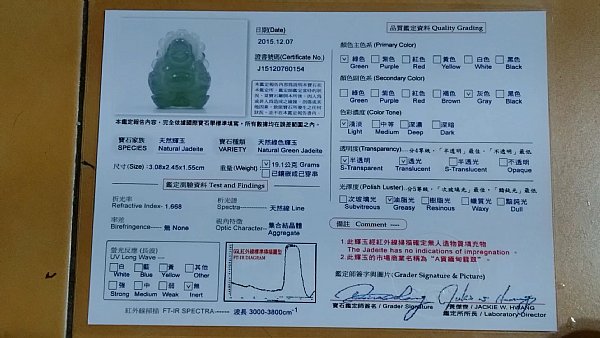 日期(Date)
2015.12.07
證書號碼(Certificate No.)
J15120760154
本鑑定報告內容,完全依據國際寶石學標準填寫,所有數據均在誤差範圍之內。
寶石家族 天然輝玉
SPECIES Natural Jadeite
寶石種類 天然綠色輝玉
VARIETY Natural Green Jadeite
尺寸(Size) :3.08x2.45x1.55cm
重量(Weight) ✓ 19.1公克 Grams
已鑲嵌或已穿串
鑑定測驗資料 Test and Findings
折光率
Refractive Index- 1.668
析光譜
Spectra 天然線 Line
重折率
Birefringence 無 None
視角特徵
Optic Character 集合結晶體
Aggregate
螢光反應 (長波)
UV Long Wave
白 藍 黃 其他
White Blue Yellow Other
強 中 弱 ✓ 無
Strong Medium Weak Inert
FT-IR DIAGRAM
紅外線掃描 FT-IR SPECTRA 波長 3000-3800cm⁻¹
品質鑑定資料 Quality Grading
顏色主色系 (Primary Color)
✓ 綠色 紫色 紅色 黃色 白色 黑色
Green Purple Red Yellow White Black
顏色副色系 (Secondary Color)
綠色 紫色 紅色 褐色 ✓ 灰色 黑色
Green Purple Red Brown Gray Black
色彩濃度 (Color Tone)
✓ 淺淡 中等 深濃 深暗
Light Medium Deep Dark
透明度(Transparency) 分4等級,「半透明」最佳,「不透明」最低
✓ 半透明 ✓ 透光 半透光 不透明
S-Transparent Translucent S-Translucent Opaque
光澤度(Polish Luster) 分5等級,「次玻璃光」最佳,「黯鈍光」最低
次玻璃光 ✓ 油脂光 樹脂光 蠟質光 黯鈍光
Subvitreous Greasy Resinous Waxy Dull
備註 Comment
1.此輝玉經紅外線掃描確定無人造物質填充物
The Jadeite has no indications of impregnation.
2.此輝玉的市場商業名稱為"A貨緬甸翡翠"
鑑定師簽字與圖片(Grader Signature & Picture)
寶石鑑定師簽名 / Grader Signature
JACKIE W. HWANG
鑑定所所長 / Laboratory Director